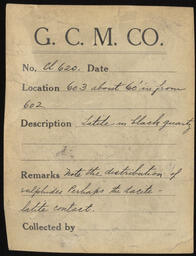 G. C. M. CO.
No. Cl 620. Date
Location 603 about 60' in from
602
Description Latite in black quartz
Remarks Note the distribution of
sulphides Perhaps the dacite-
latite contact.
Collected by